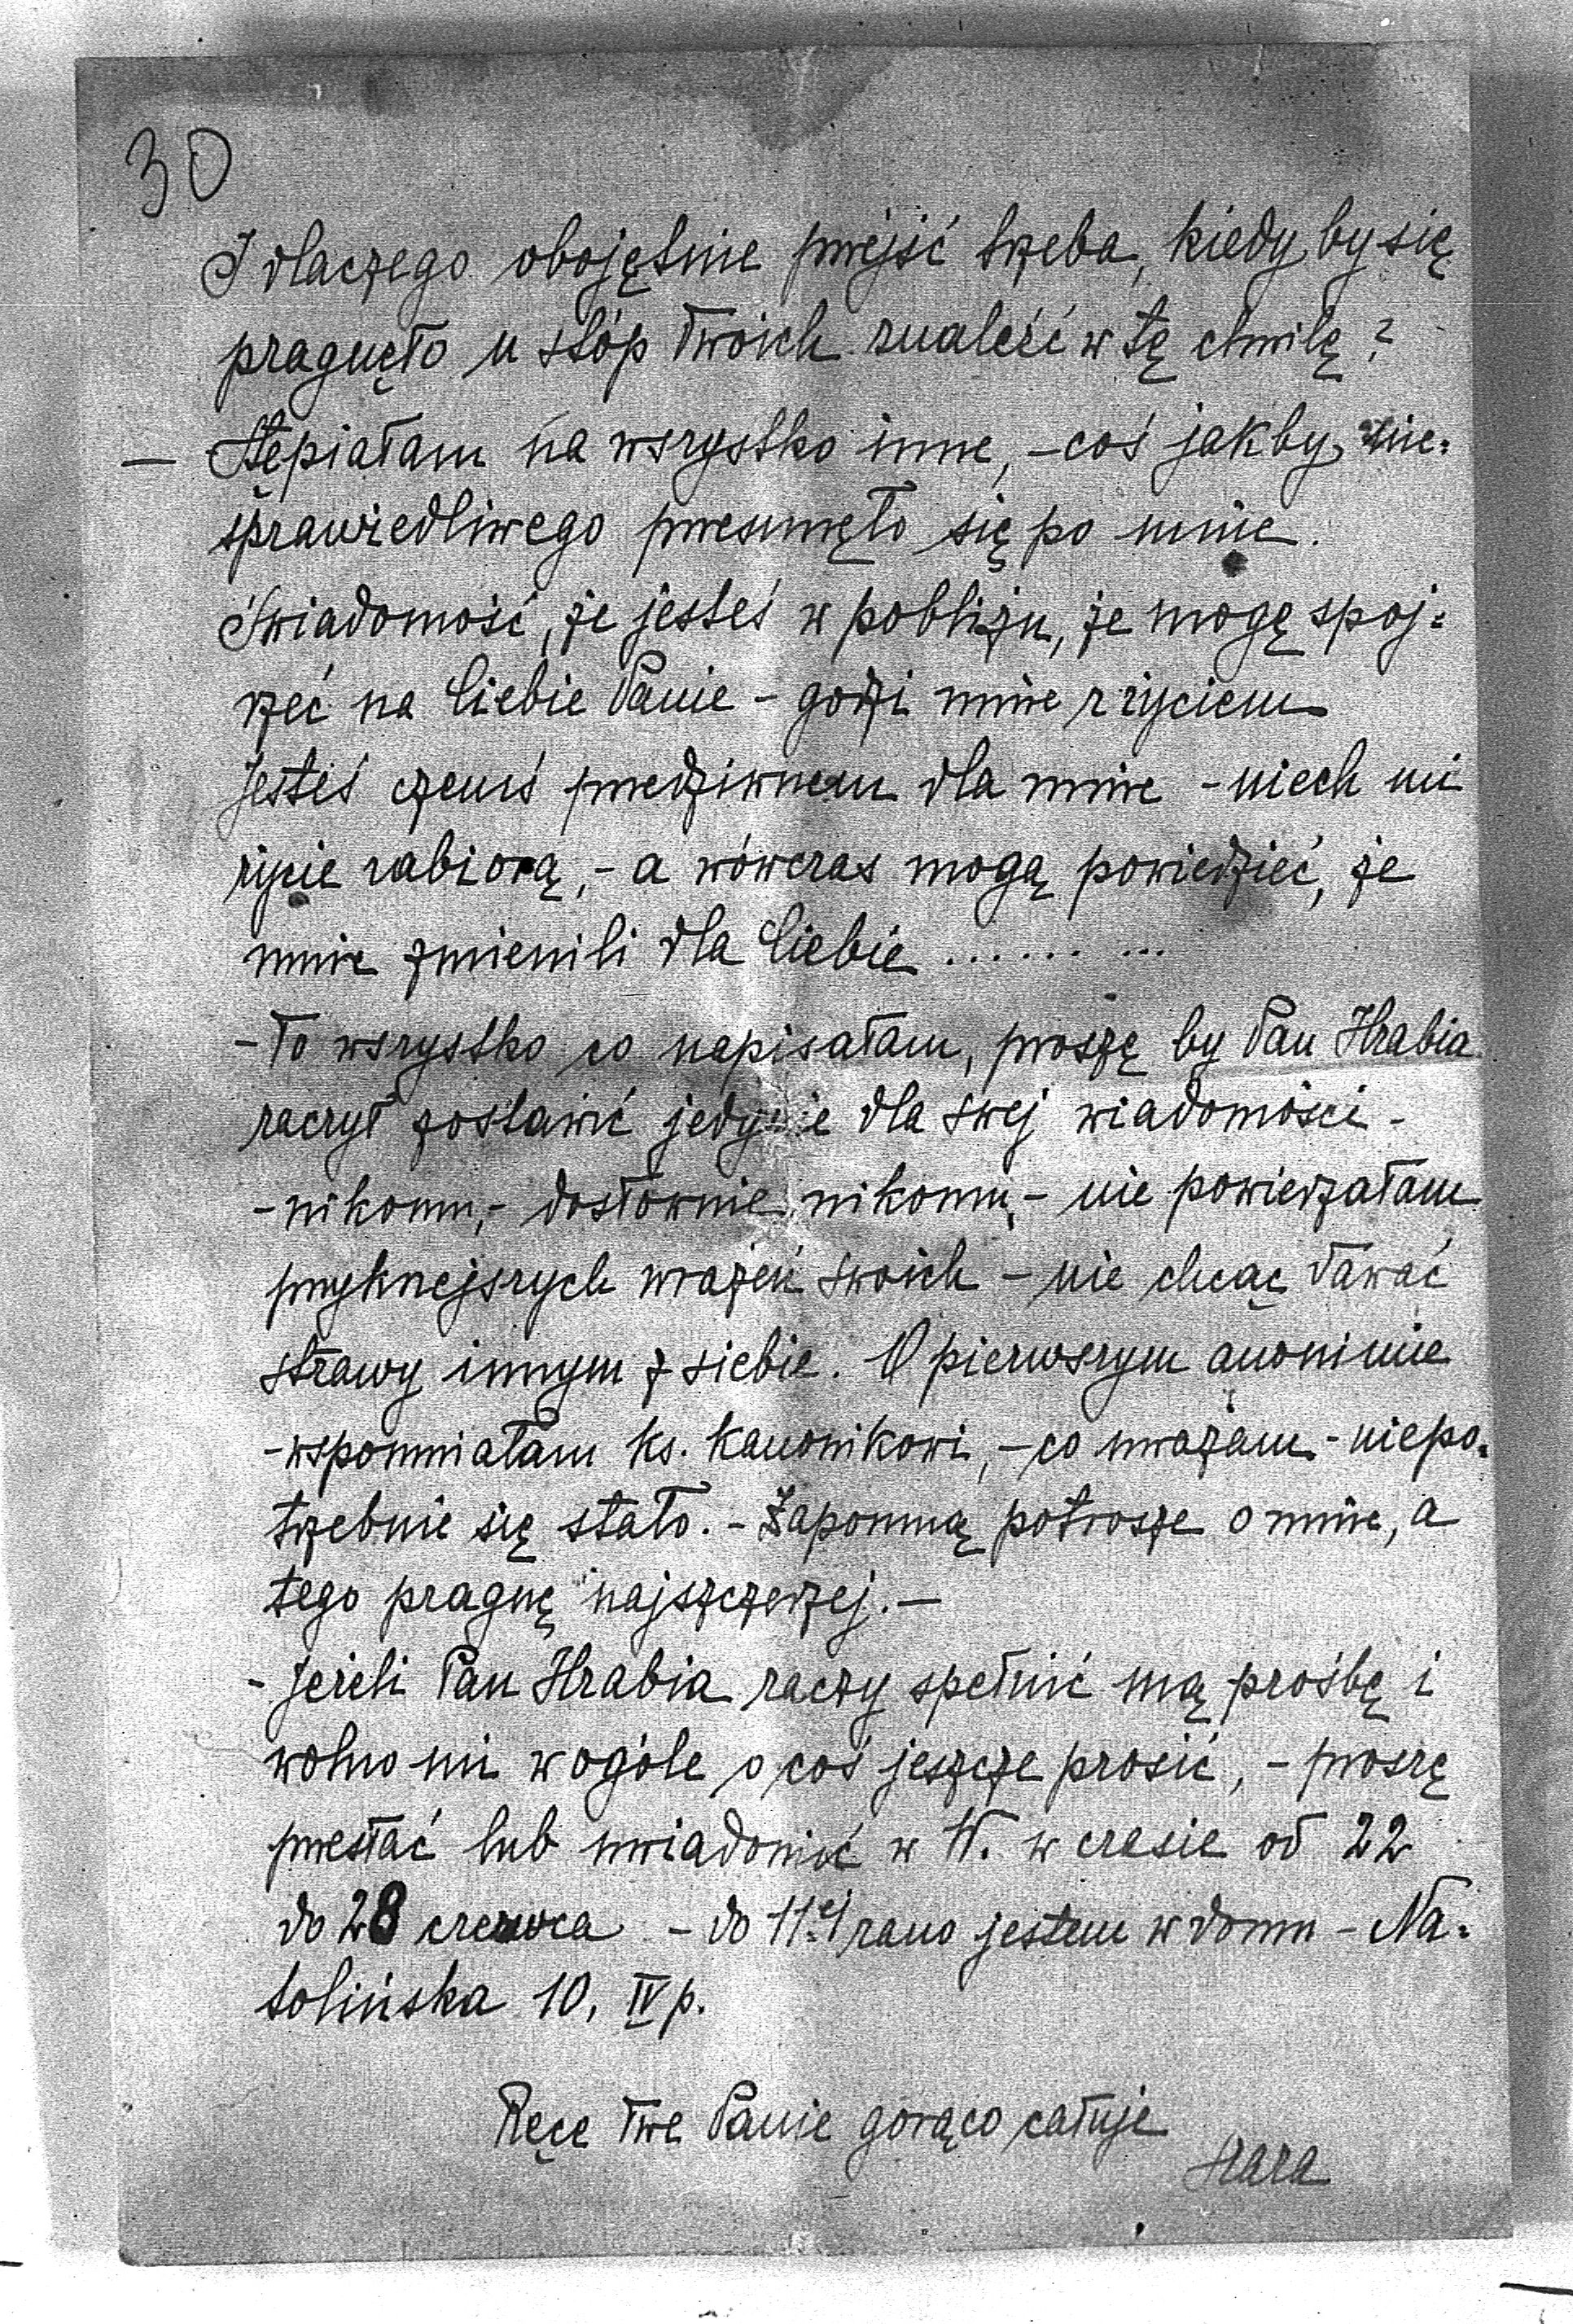 30
I dlaczego obojętnie przejść trzeba, kiedy by się
pragnęło u stóp Twoich znaleźć w tę chwilę?
— Stępiałam na wszystko inne, - coś jakby nie=
sprawiedliwego przesunęło się po mnie.
Świadomość, że jesteś w pobliżu, że mogę spoj=
rzeć na Ciebie Panie - godzi mnie z życiem
Jesteś czemś przedziwnem dla mnie - niech mi
życie zabiorą, - a wówczas mogą powiedzieć, że
mnie zmienili dla Ciebie .........
- To wszystko co napisałam, proszę by Pan Hrabia
raczył zostawić jedynie dla swej wiadomości -
- nikomu, - dosłownie nikomu, - nie powierzałam
przyknejszych wrażeń swoich - nie chcąc dawać
strawy innym z siebie. O pierwszym anonimie
- wspomniałam ks. Kanonikowi, - co uważam - niepo=
trzebnie się stało. - Zapomną potrosze o mnie, a
tego pragnę najszczerzej. —
- Jeżeli Pan Hrabia raczy spełnić mą prośbę i
wolno mi wogóle o coś jeszcze prosić, - proszę
przesłać lub uwiadomić w W. w czasie od 22
do 28 czerwca - do 11ej rano jestem w domu - Na=
tolińska 10, IV p.
Ręce Twe Panie gorąco całuje